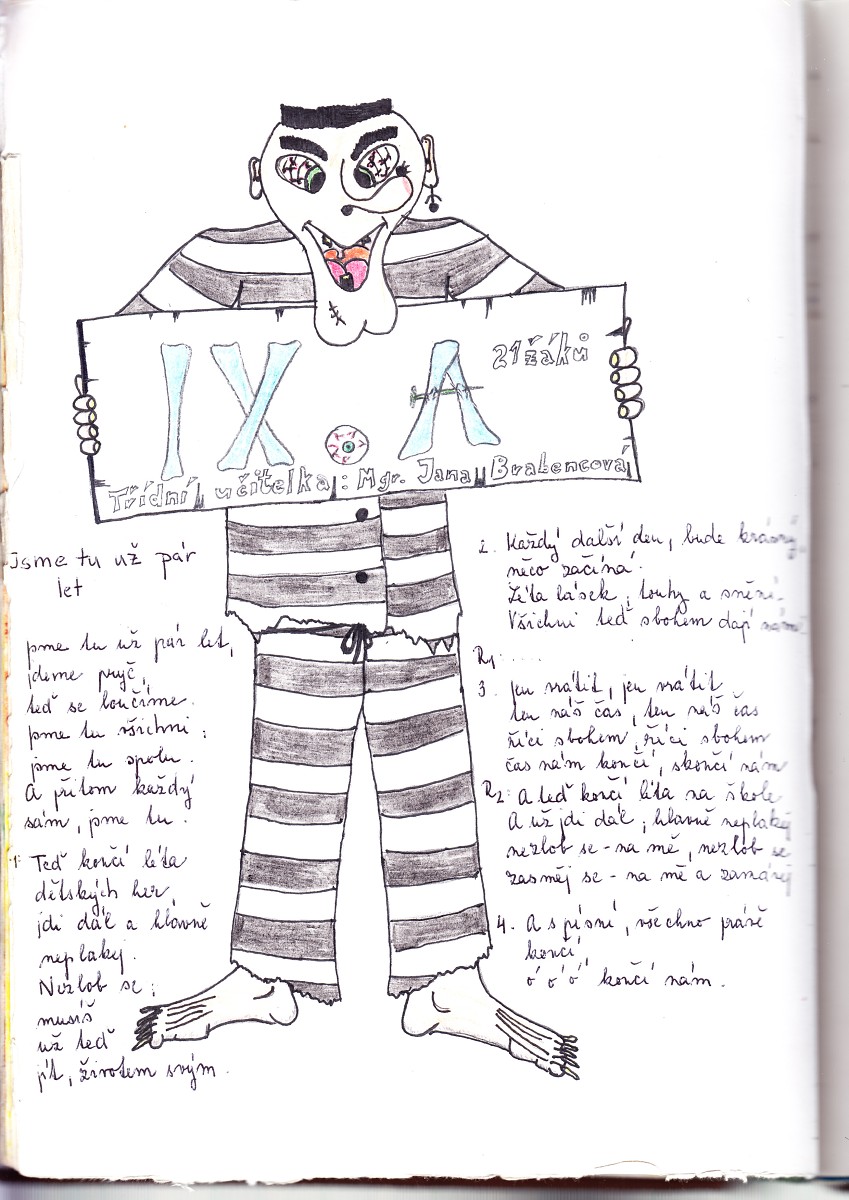 IX. A
21 žáků
Třídní učitelka: Mgr. Jana Brabencová
Jsme tu už pár
let
jsme tu už pár let,
jdeme pryč,
teď se loučíme.
jsme tu všichni,
jsme tu spolu.
A přitom každý
sám, jsme tu.
1. Teď končí léta
dětských her,
jdi dál a hlavně
neplakej.
Nezlob se,
musíš
už teď
jít, životem svým.
2. Každý další den, bude krásný,
něco začíná.
Léta lásek, touhy a snění.
Všichni teď sbohem dají
R1: ....
3. jen vrátit, jen vrátit
ten náš čas, ten náš čas
říci sbohem, říci sbohem
čas nám končí, skončí nám
R2: A teď končí léta na škole
A už jdi dál, hlavně neplakej
nezlob se - na mě, nezlob se
zasměj se - na mě a zamávej
4. A s písní, všechno právě
končí,
ó ó ó končí nám.